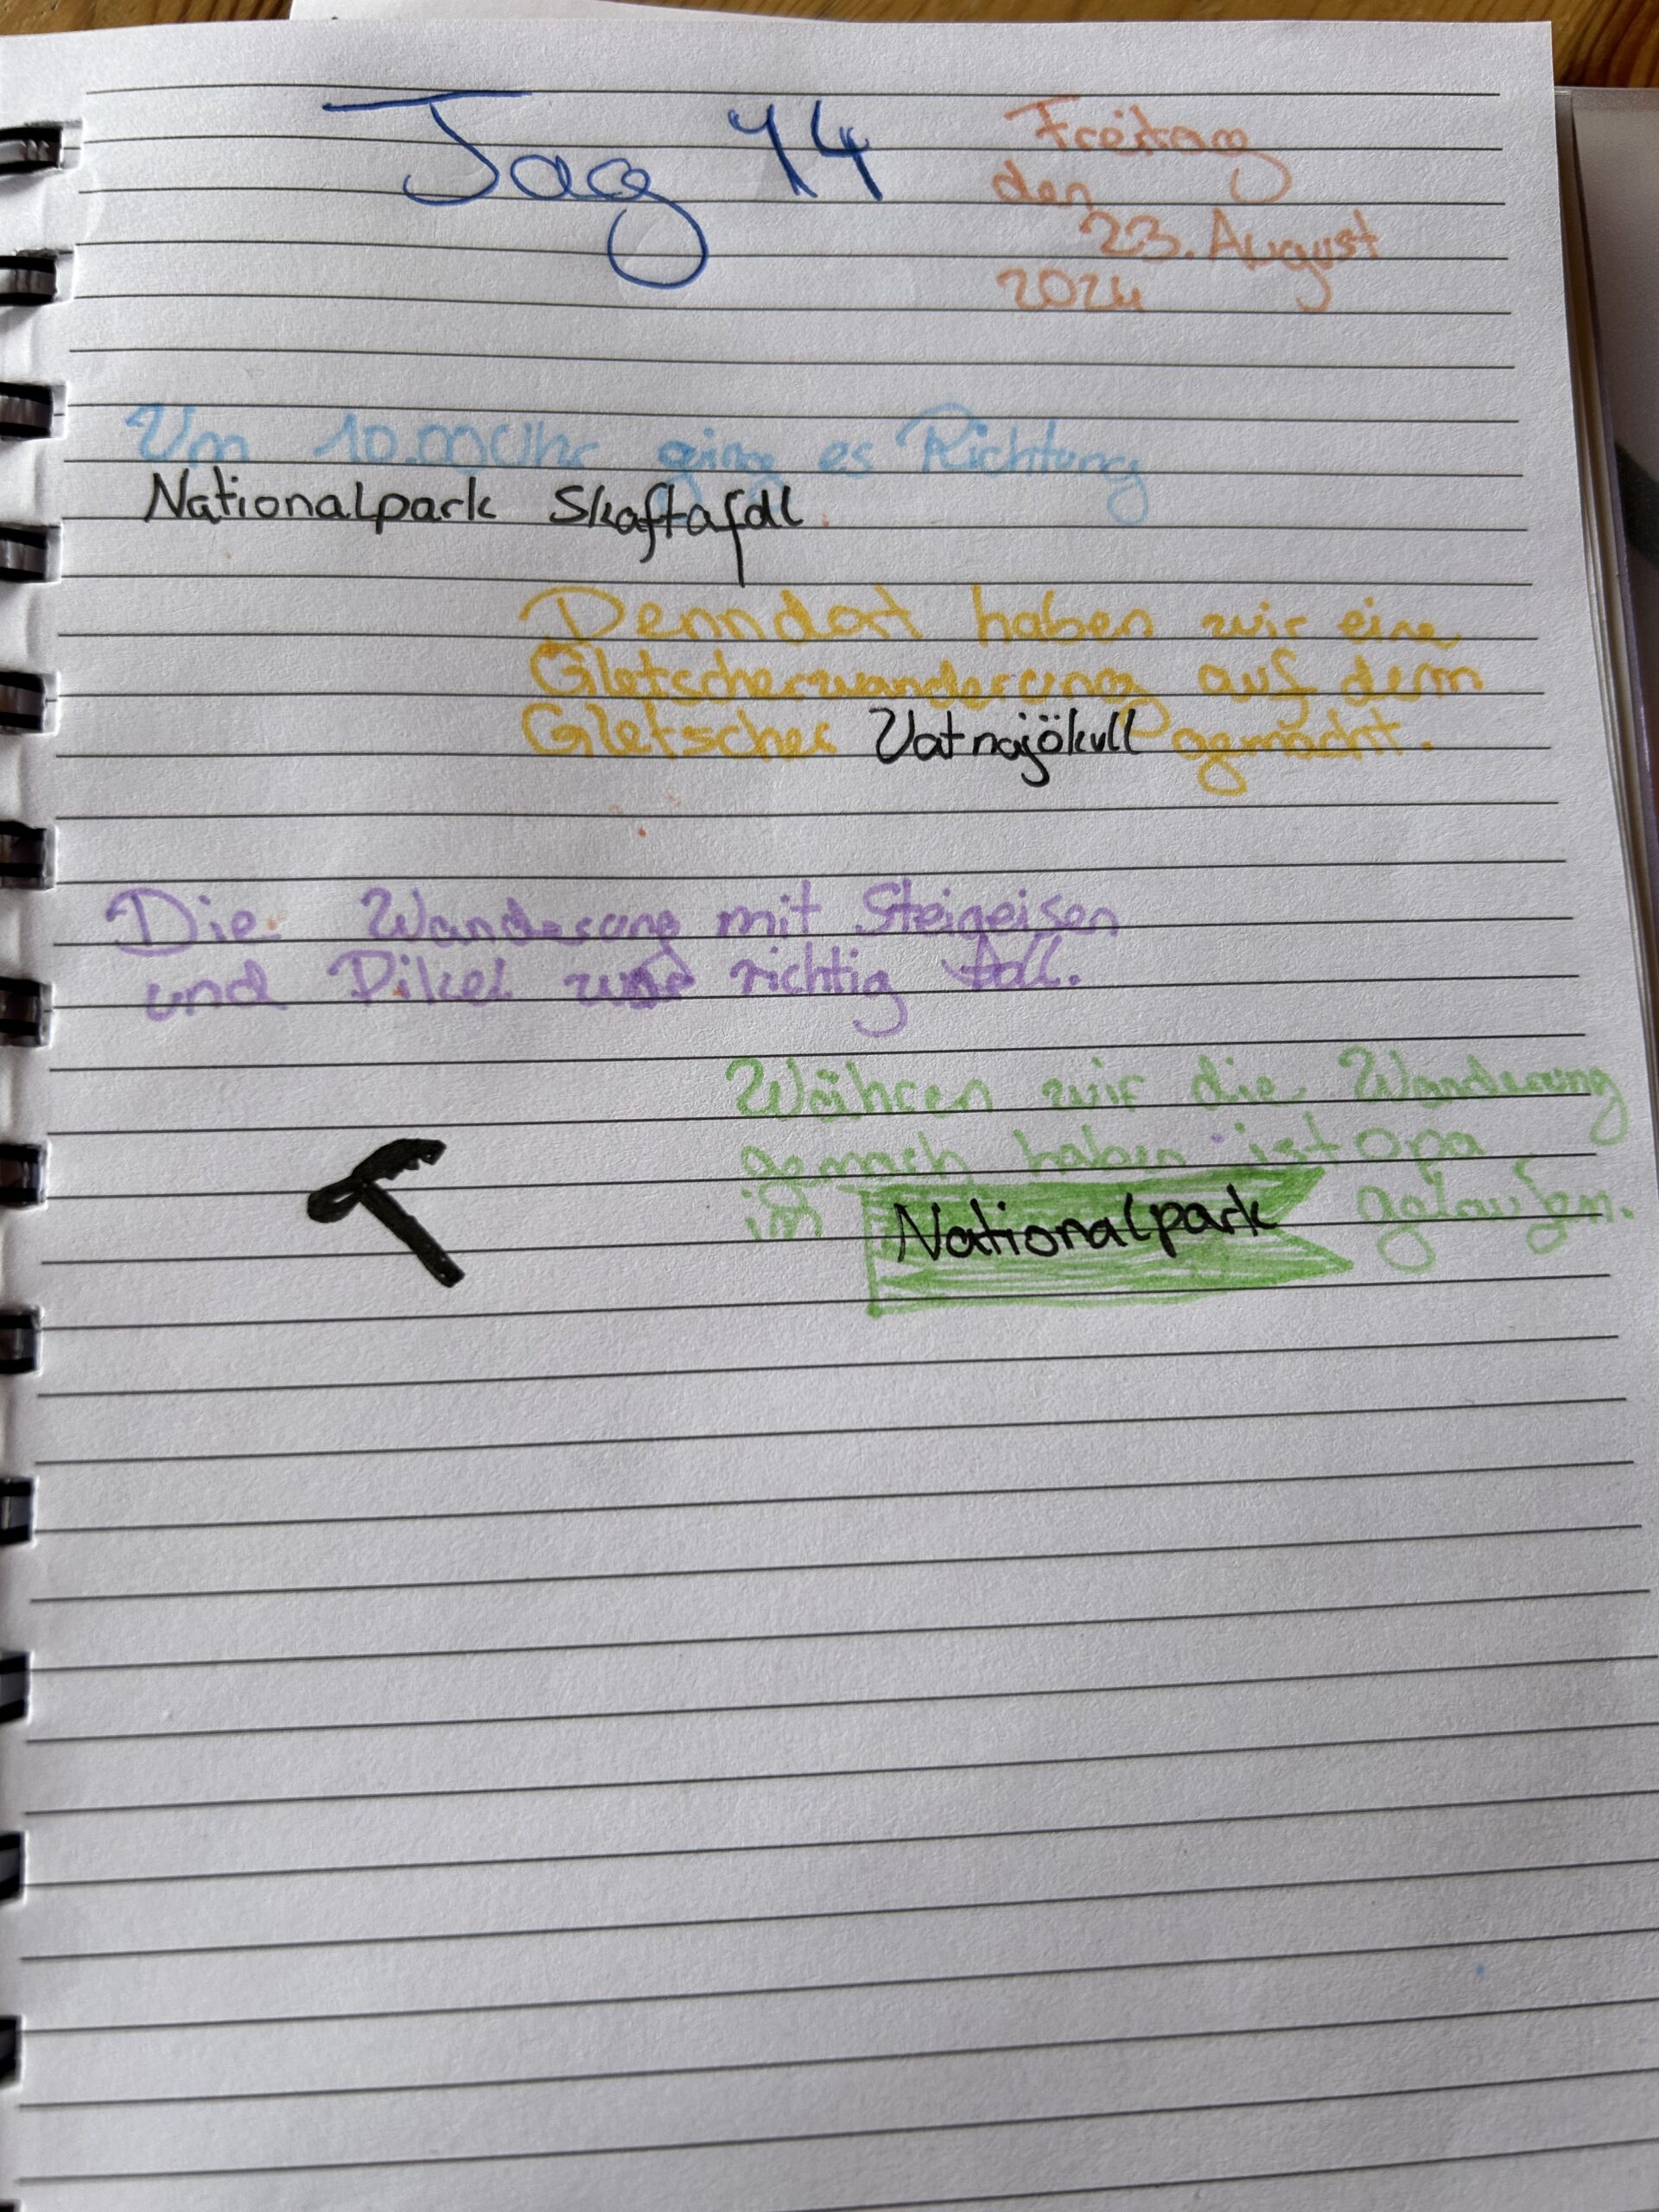 Tag 14
Freitag
den
23. August
2024
Um 10.00 Uhr ging es Richtung
Nationalpark Skaftafall.
Denndort haben wir eine
Gletscherwanderung auf dem
Gletscher Vatnajökull gemacht.
Die Wanderung mit Steigeisen
und Pikel war richtig toll.
Währen wir die Wanderung
gemach haben ist Opa
im Nationalpark gelaufen.